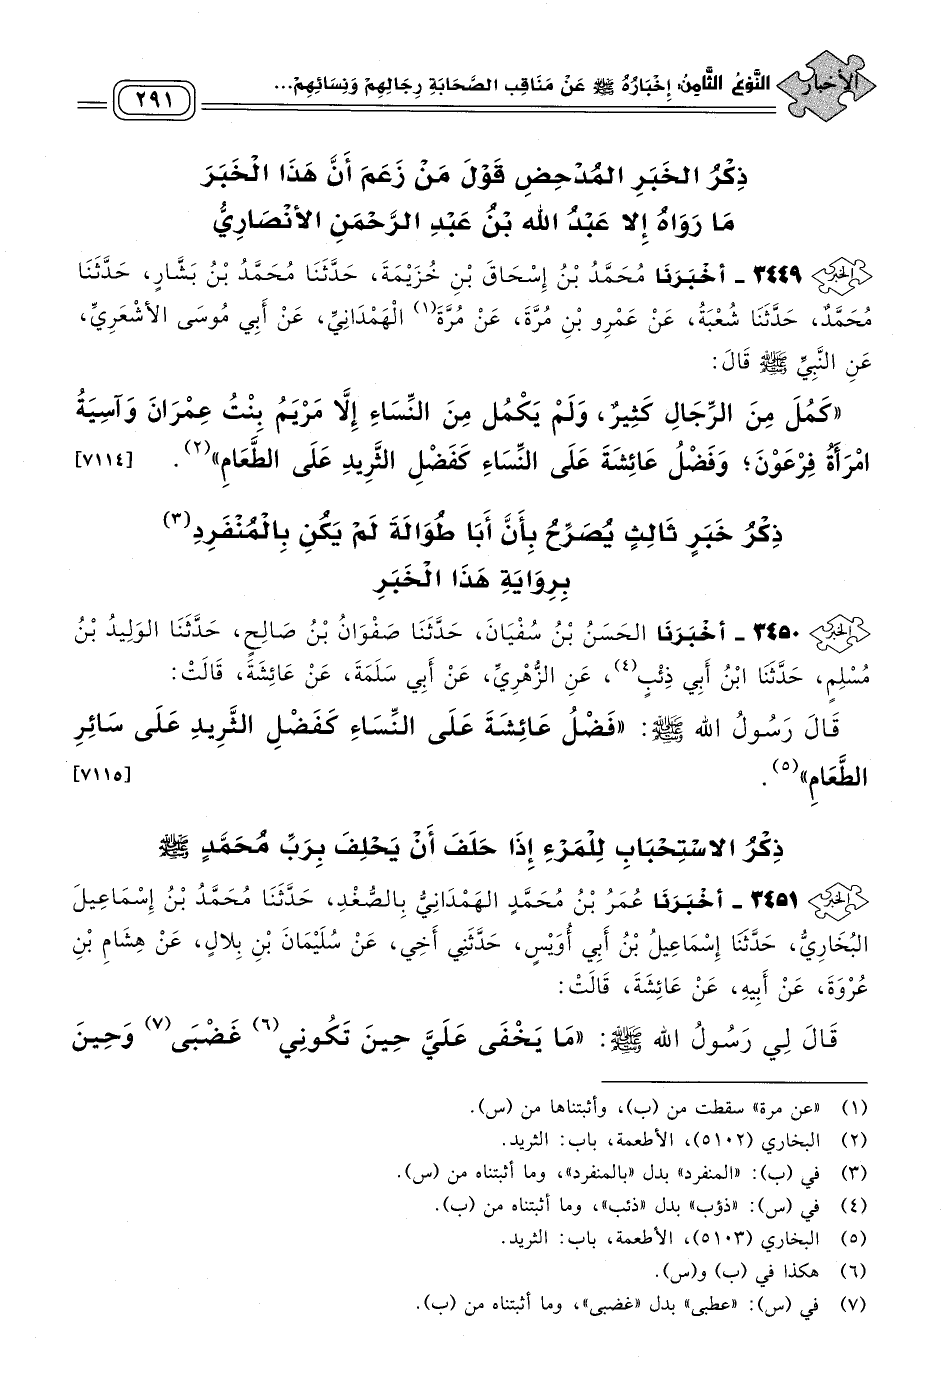 الأخبار النَّوْعُ الثَّامِنُ: إِخْبَارُهُ ﷺ عَنْ مَنَاقِبِ الصَّحَابَةِ رِجَالِهِمْ وَنِسَائِهِمْ...
٢٩١
ذِكْرُ الخَبَرِ المُدْحِضِ قَوْلَ مَنْ زَعَمَ أَنَّ هَذَا الْخَبَرَ
مَا رَوَاهُ إِلا عَبْدُ الله بْنُ عَبْدِ الرَّحْمَنِ الأَنْصَارِيُّ
٣٤٤٩ - أَخْبَرَنَا مُحَمَّدُ بْنُ إِسْحَاقَ بْنِ خُزَيْمَةَ، حَدَّثَنَا مُحَمَّدُ بْنُ بَشَّارٍ، حَدَّثَنَا
مُحَمَّدٌ، حَدَّثَنَا شُعْبَةُ، عَنْ عَمْرِو بْنِ مُرَّةَ، عَنْ مُرَّةَ(١) الْهَمْدَانِيِّ، عَنْ أَبِي مُوسَى الأَشْعَرِيِّ،
عَنِ النَّبِيِّ ﷺ قَالَ:
«كَمُلَ مِنَ الرِّجَالِ كَثِيرٌ، وَلَمْ يَكْمُل مِنَ النِّسَاءِ إِلَّا مَرْيَمُ بِنْتُ عِمْرَانَ وَآسِيَةُ
امْرَأَةُ فِرْعَوْنَ؛ وَفَضْلُ عَائِشَةَ عَلَى النِّسَاءِ كَفَضْلِ الثَّرِيدِ عَلَى الطَّعَامِ»(٢). [٧١١٤]
ذِكْرُ خَبَرٍ ثَالِثٍ يُصَرِّحُ بِأَنَّ أَبَا طُوَالَةَ لَمْ يَكُنْ بِالْمُنْفَرِدِ(٣)
بِرِوَايَةِ هَذَا الْخَبَرِ
٣٤٥٠ - أَخْبَرَنَا الحَسَنُ بْنُ سُفْيَانَ، حَدَّثَنَا صَفْوَانُ بْنُ صَالِحٍ، حَدَّثَنَا الوَلِيدُ بْنُ
مُسْلِمٍ، حَدَّثَنَا ابْنُ أَبِي ذِئْبٍ(٤)، عَنِ الزُّهْرِيِّ، عَنْ أَبِي سَلَمَةَ، عَنْ عَائِشَةَ، قَالَتْ:
قَالَ رَسُولُ الله ﷺ: «فَضْلُ عَائِشَةَ عَلَى النِّسَاءِ كَفَضْلِ الثَّرِيدِ عَلَى سَائِرِ
الطَّعَامِ»(٥). [٧١١٥]
ذِكْرُ الاسْتِحْبَابِ لِلْمَرْءِ إِذَا حَلَفَ أَنْ يَحْلِفَ بِرَبِّ مُحَمَّدٍ ﷺ
٣٤٥١ - أَخْبَرَنَا عُمَرُ بْنُ مُحَمَّدٍ الهَمْدَانِيُّ بِالصُّغْدِ، حَدَّثَنَا مُحَمَّدُ بْنُ إِسْمَاعِيلَ
البُخَارِيُّ، حَدَّثَنَا إِسْمَاعِيلُ بْنُ أَبِي أُوَيْسٍ، حَدَّثَنِي أَخِي، عَنْ سُلَيْمَانَ بْنِ بِلَالٍ، عَنْ هِشَامِ بْنِ
عُرْوَةَ، عَنْ أَبِيهِ، عَنْ عَائِشَةَ، قَالَتْ:
قَالَ لِي رَسُولُ الله ﷺ: «مَا يَخْفَى عَلَيَّ حِينَ تَكُونِي(٦) غَضْبَى(٧) وَحِينَ
(١) «عن مرة» سقطت من (ب)، وأثبتناها من (س).
(٢) البخاري (٥١٠٢)، الأطعمة، باب: الثريد.
(٣) في (ب): «المنفرد» بدل «بالمنفرد»، وما أثبتناه من (س).
(٤) في (س): «ذؤب» بدل «ذئب»، وما أثبتناه من (ب).
(٥) البخاري (٥١٠٣)، الأطعمة، باب: الثريد.
(٦) هكذا في (ب) و(س).
(٧) في (س): «عطبى» بدل «غضبى»، وما أثبتناه من (ب).